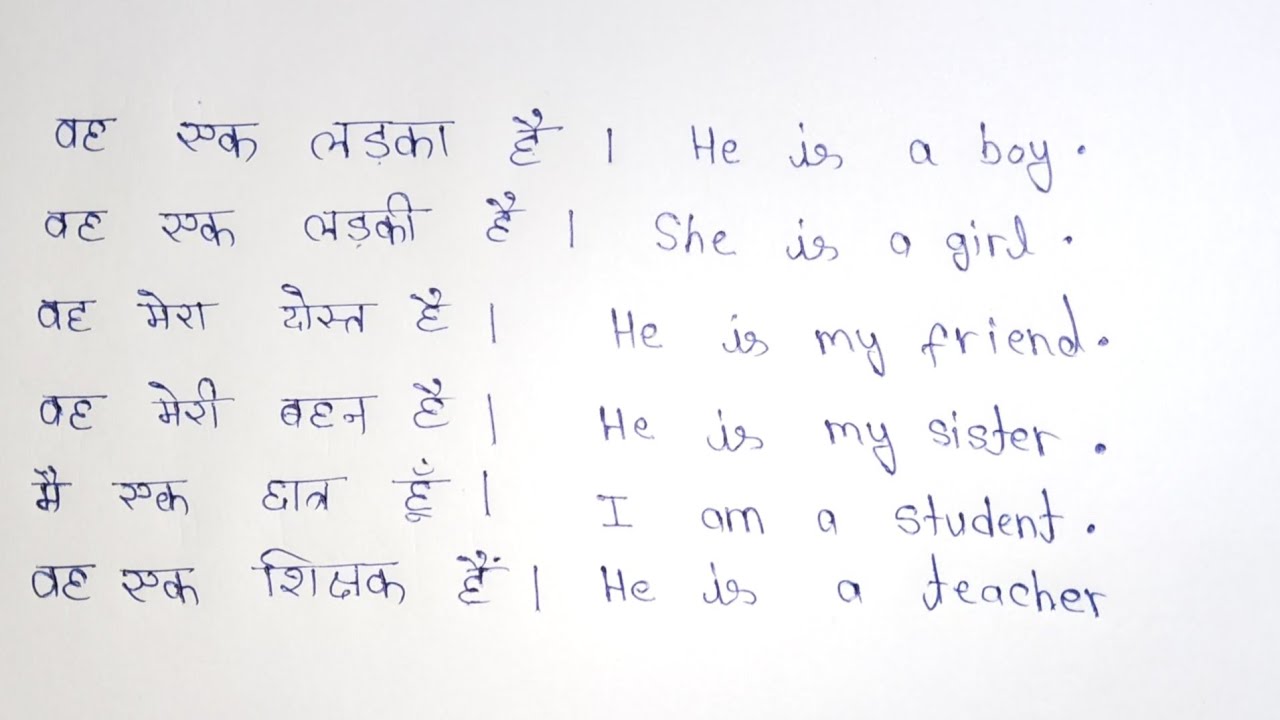 वह एक लड़का है । He is a boy.
वह एक लड़की है । She is a girl.
वह मेरा दोस्त है । He is my friend.
वह मेरी बहन है । He is my sister.
मै एक छात्र हूँ । I am a student.
वह एक शिक्षक हैं । He is a teacher